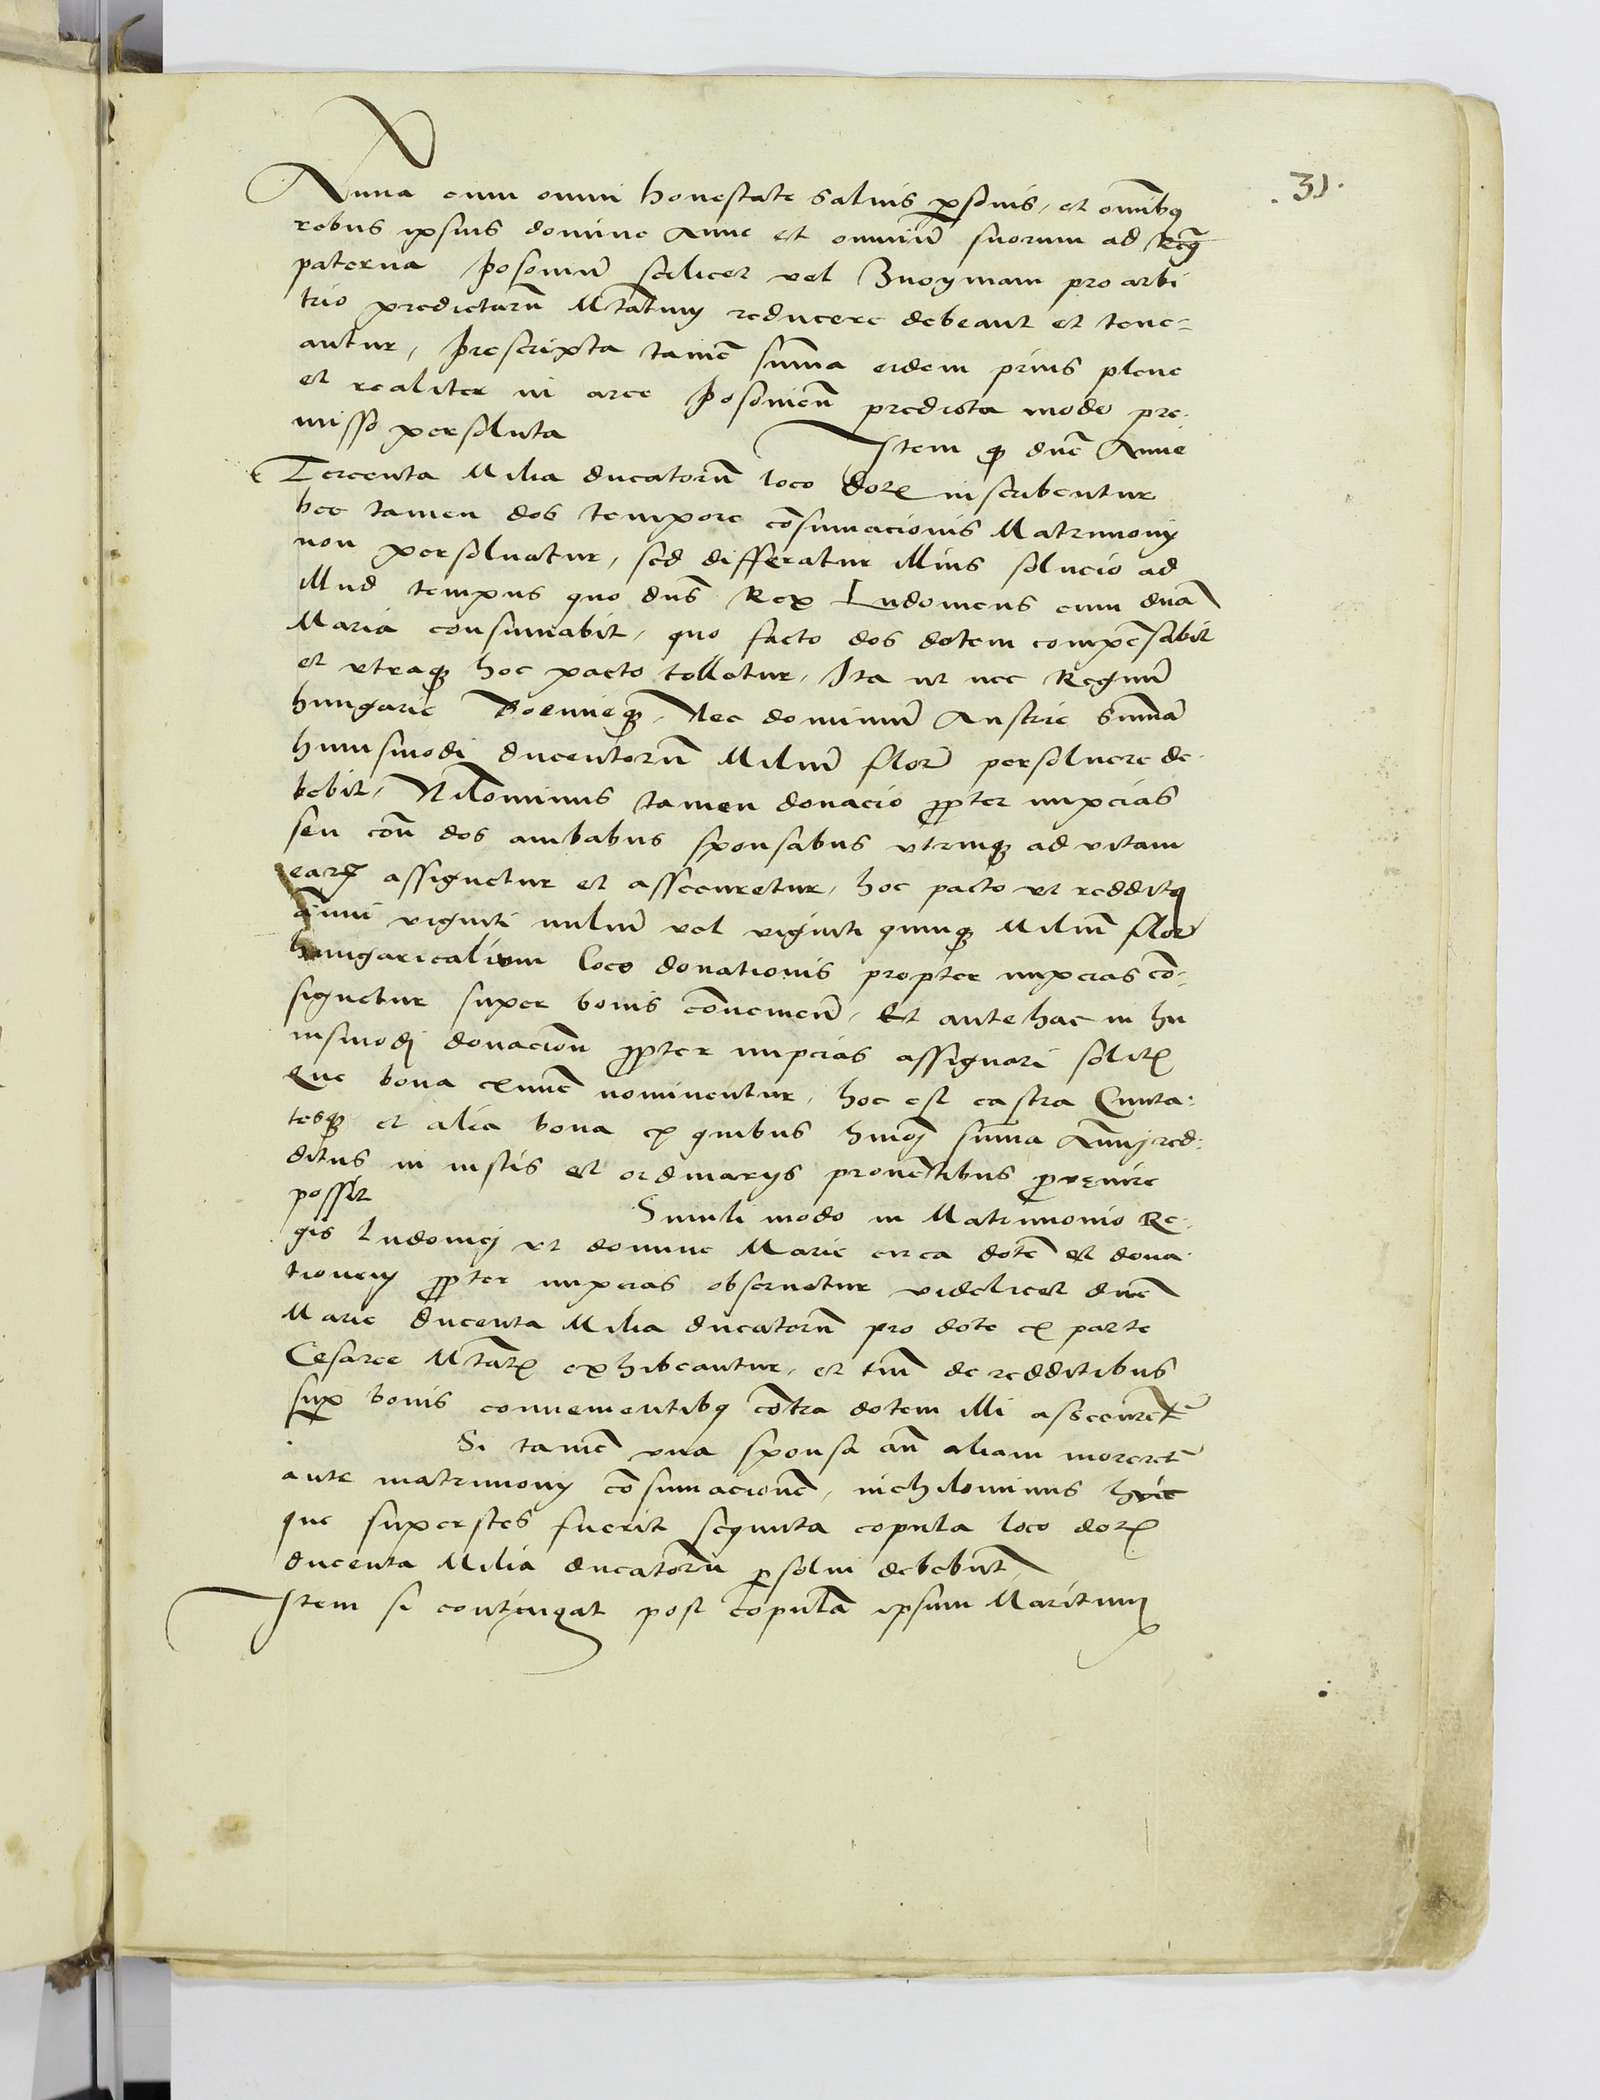 31.
Anna cum omni honestate salvis p̱sonis, et omībq
rebus ipsius domine Anne et omniū suorum ad Regā
paterna Posoniū scilicet vel Znoymam pro arbi
trio predictarū Mtatum reducere debeant et tene-
antur, Prescripta tamē sūma eidem prius plene
et realiter in arce Posonieñ predicta modo pre-
misso persoluta Item qɔ dñe Anne
Tercenta Milia ducatorū loco dotꝭ inscribentur
hec tamen dos tempore cōsumacionis Matrimonij
non persoluatur, sed differatur illius solucio ad
illud tempus quo dñs Rex Ludouicus cum dña
Maria consumabit, quo facto dos dotem compēsabit
et vtraqꝫ hoc pacto tolletur, Ita ut nec Regnū
hungarie Boemieqꝫ, Nec dominiū Austrie sūmā
huiusmodi ducentorū Miliū florꝭ persoluere de-
bebit, Nilominus tamen donacio ꝓpter nupcias
seu cōn dos ambabus sponsabus vtrinqꝫ ad vitam
earꝝ assignetur et assecuretur, hoc pacto ut redditq
ānui viginti miliū vel viginti quinqꝫ Miliū florꝭ
hungaricalium loco donationis propter nupcias cō-
signetur super bonis cōuenieñ, Et antehac in hu
iusmodj donacioñ ꝓpter nupcias assignari solitꝭ
Que bona exnūc nominentur, hoc est castra Ciuita-
tesqꝫ et alia bona ex quibus hmōj sūma Ānuj red-
ditus in iustis et ordinarijs prouētibus ꝓvenire
possit Simili modo in Matrimonio Re-
gis Ludouicj et domine Marie circa dotē et dona-
tionem ꝓpter nupcias obseruetur videlicet dñe
Marie ducenta Milia ducatorū pro dote ex parte
Cesaree Mtatꝭ exhibeantur, et tm̄ de redditibus
suꝑ bonis conuenientibq cōtra dotem illi assecuretꝭ
Si tamē vna sponsa añ aliam moreretꝭ
ante matrimonij cōsumacionē, nichilominus huic
que superstes fuerit sequuta copula loco dotꝭ
ducenta Milia ducatorū p̱solui debebūt
Item si contingat post copulā ipsum Maritum